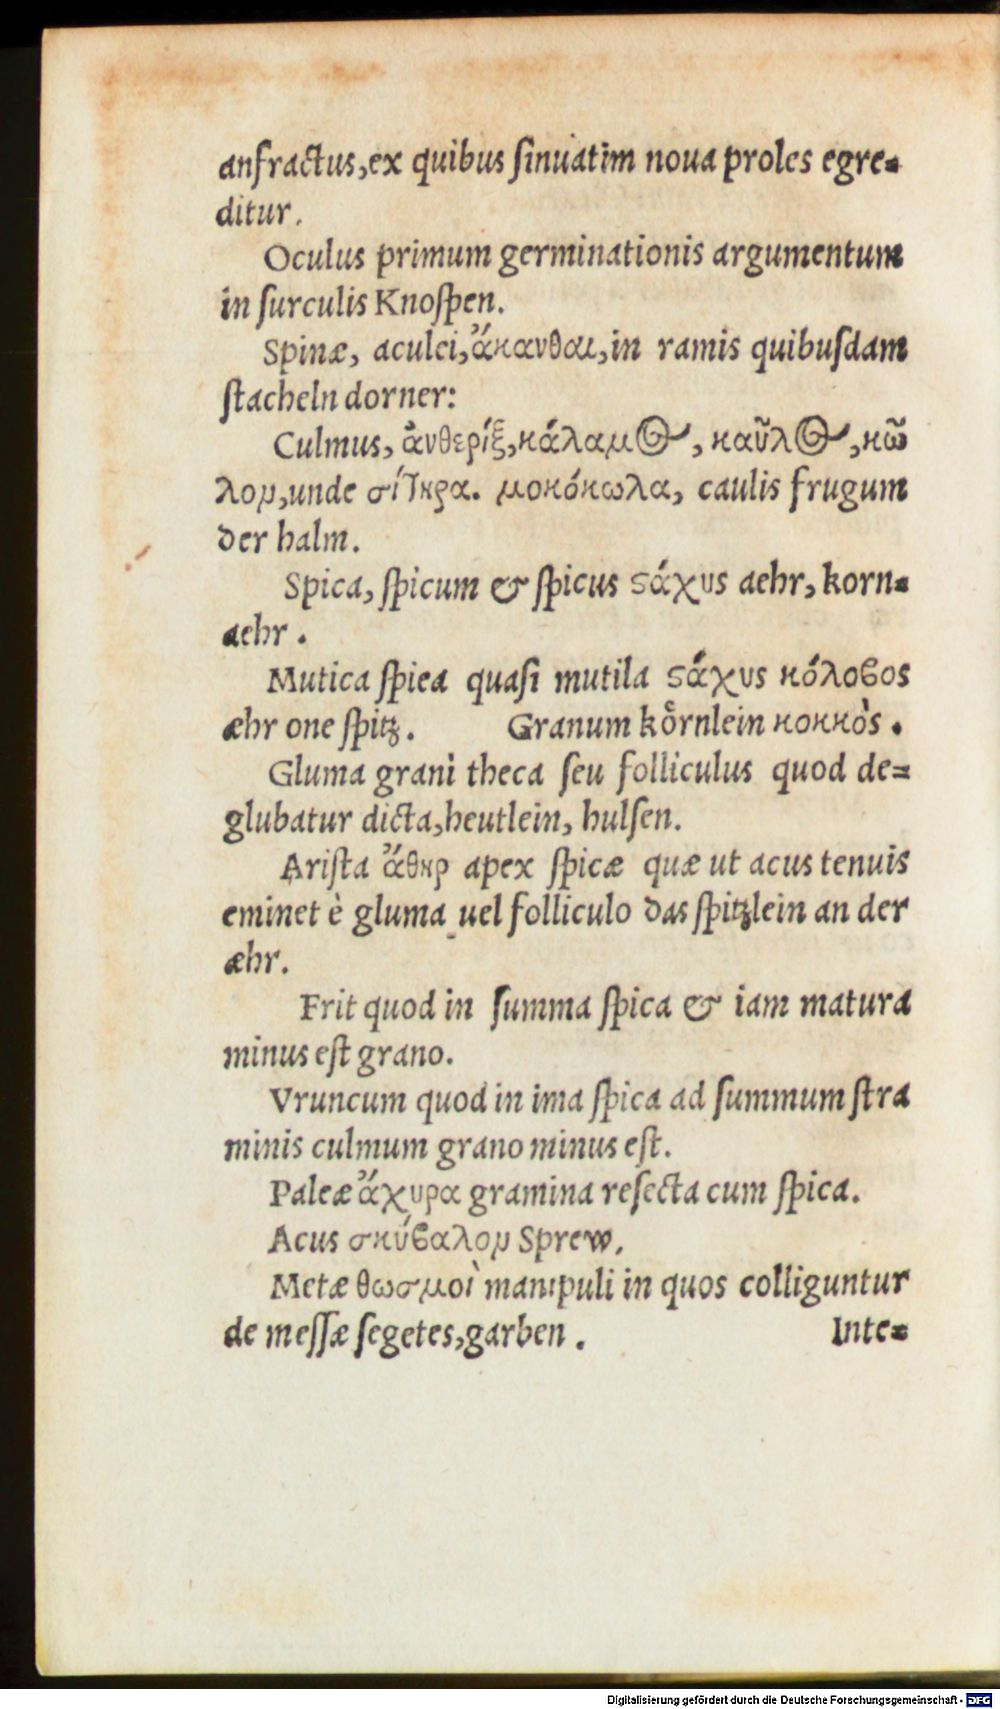 anfractus, ex quibus ſinuatim noua proles egre=
ditur.
Oculus primum germinationis argumentum
in ſurculis Knoſpen.
Spinæ, aculei, ἄκανθαι, in ramis quibuſdam
ſtacheln dorner:
Culmus, ἀνθερίξ, κάλαμος, καῦλος, κῶ
λον, unde σίτηρα. μοκόκωλα, caulis frugum
der halm.
Spica, ſpicum & ſpicus ϛάχυς aehr, korn=
aehr.
Mutica ſpica quaſi mutila ϛάχυς κόλοβος
æhr one ſpitz. Granum koͤrnlein κοκκὸς.
Gluma grani theca ſeu folliculus quod de=
glubatur dicta, heutlein, hulſen.
Ariſta ἄθηρ apex ſpicæ quæ ut acus tenuis
eminet è gluma uel folliculo das ſpitzlein an der
æhr.
Frit quod in ſumma ſpica & iam matura
minus eſt grano.
Vruncum quod in ima ſpica ad ſummum ſtra
minis culmum grano minus eſt.
Paleæ ἄχυρα gramina reſecta cum ſpica.
Acus σκύβαλον Sprew.
Metæ θωσμοὶ manipuli in quos colliguntur
de meſſæ ſegetes, garben. Inte=
Digitalisierung gefördert durch die Deutsche Forschungsgemeinschaft - DFG